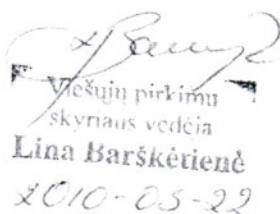 Viešųjų pirkimų
skyriaus vedėja
Lina Barškėtienė
2010-03-22